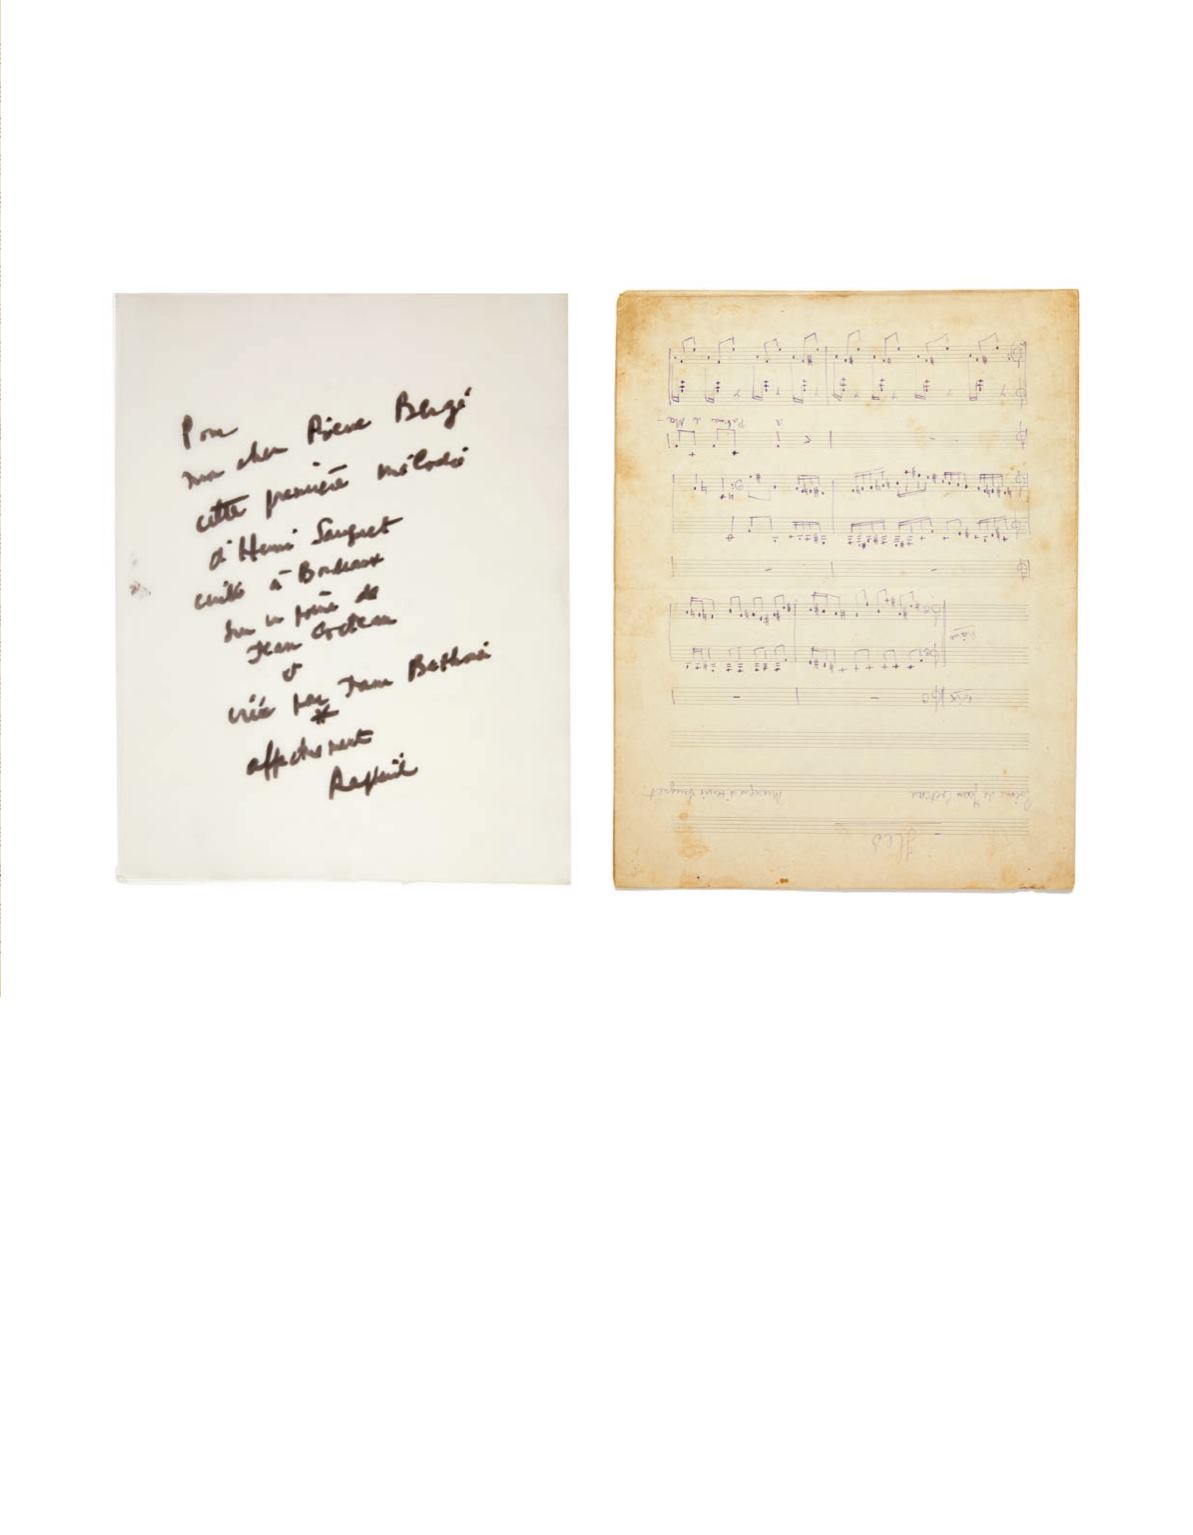 Pour
mon cher Pierre Bergé
cette première mélodie
d'Henri Sauguet
écrite à Bordeaux
sur un poème de
Jean Cocteau
et
créée par Jane Bathori
*
affectueusement
Raphaël
Iles
Poème de Jean Cocteau Musique d'Henri Sauguet
Voix
Piano
à Palma de Ma-